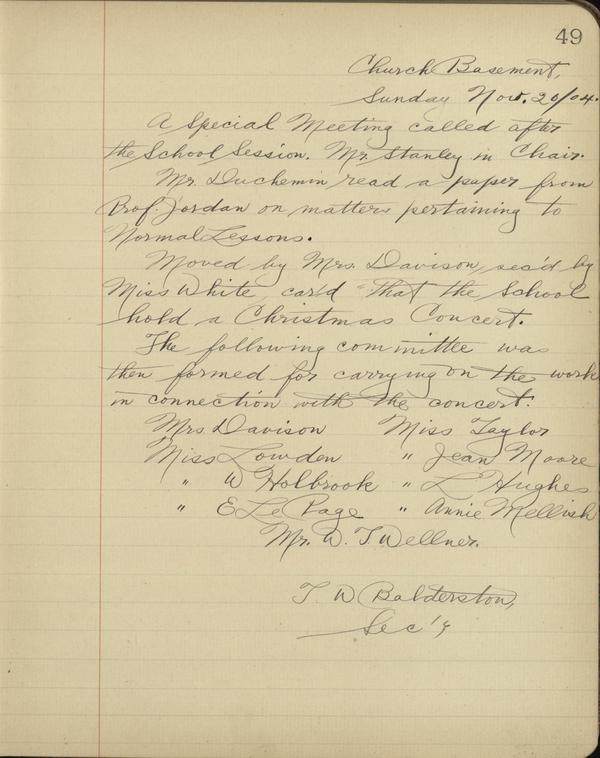 49
Church Basement,
Sunday Nov. 20/04.
A Special Meeting called after
the School Session. Mr. Stanley in Chair.
Mr. Duchemin read a paper from
Prof. Jordan on matters pertaining to
Normal Lessons.
Moved by Mrs. Davison, sec'd by
Miss White, car'd "that the School
hold a Christmas Concert.
The following committee was
then formed for carrying on the work
in connection with the concert:
Mrs Davison Miss Taylor
Miss Lowden " Jean Moore
" W Holbrook " L Hughes
" E Le Page " Annie Mellish
Mr. W. T Wellner.
T. W Balderston,
Sec'y